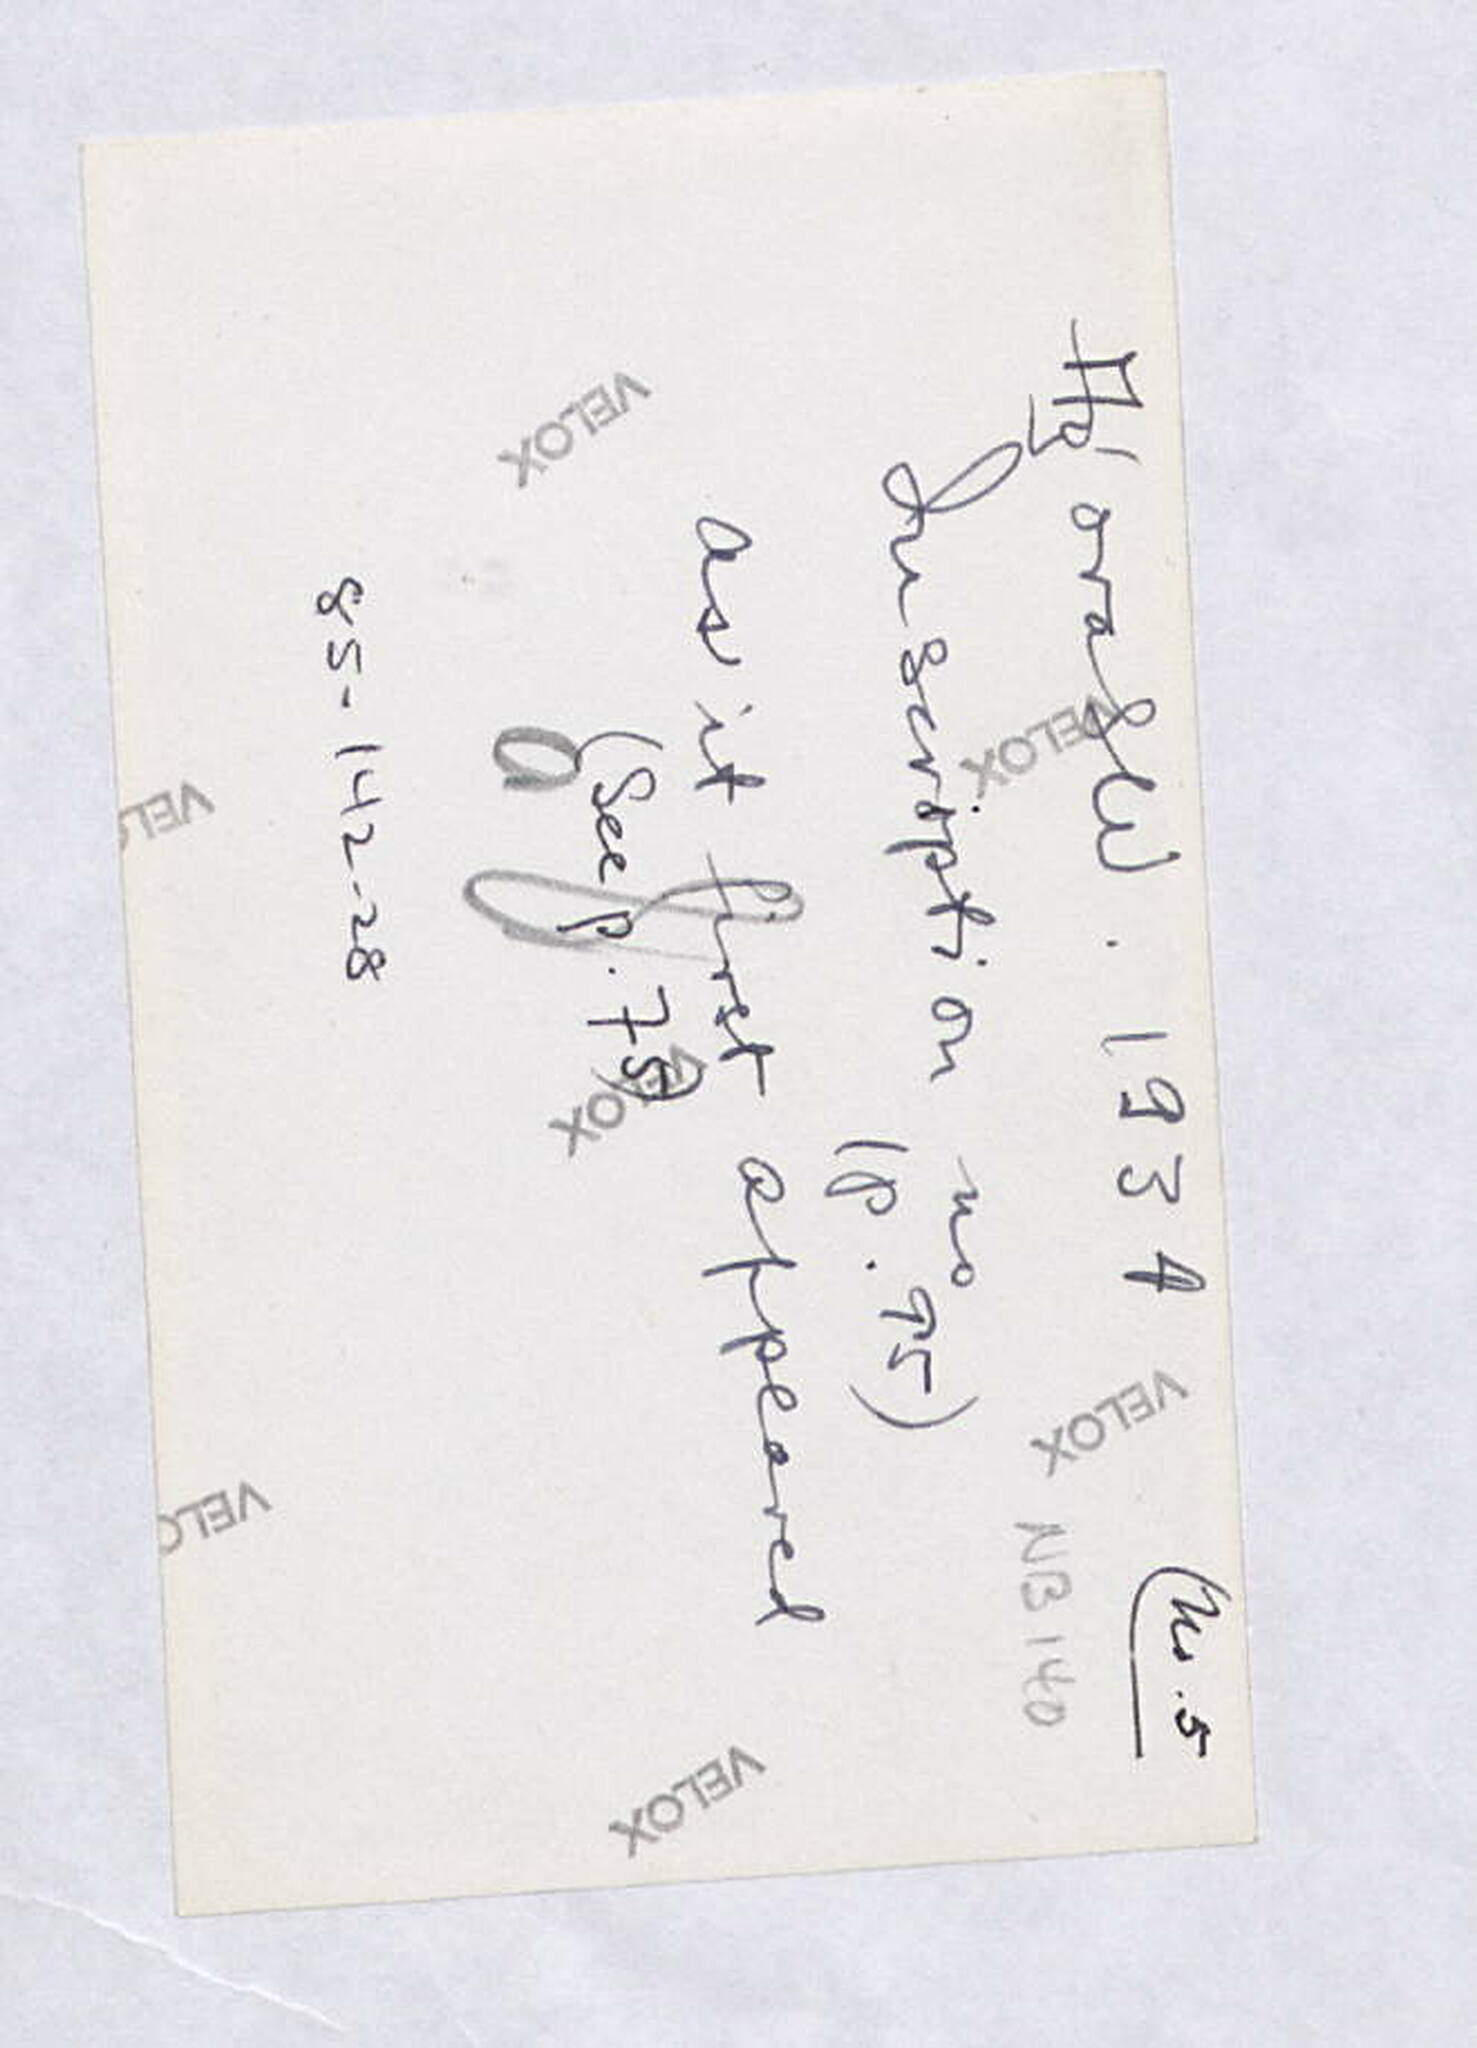 No. 5
1934
NB 140
Inscription no
(p. 95)
as it first appeared
(See p. 75)
85-142-28
VELOX
VELOX
VELOX
VELOX
VELOX